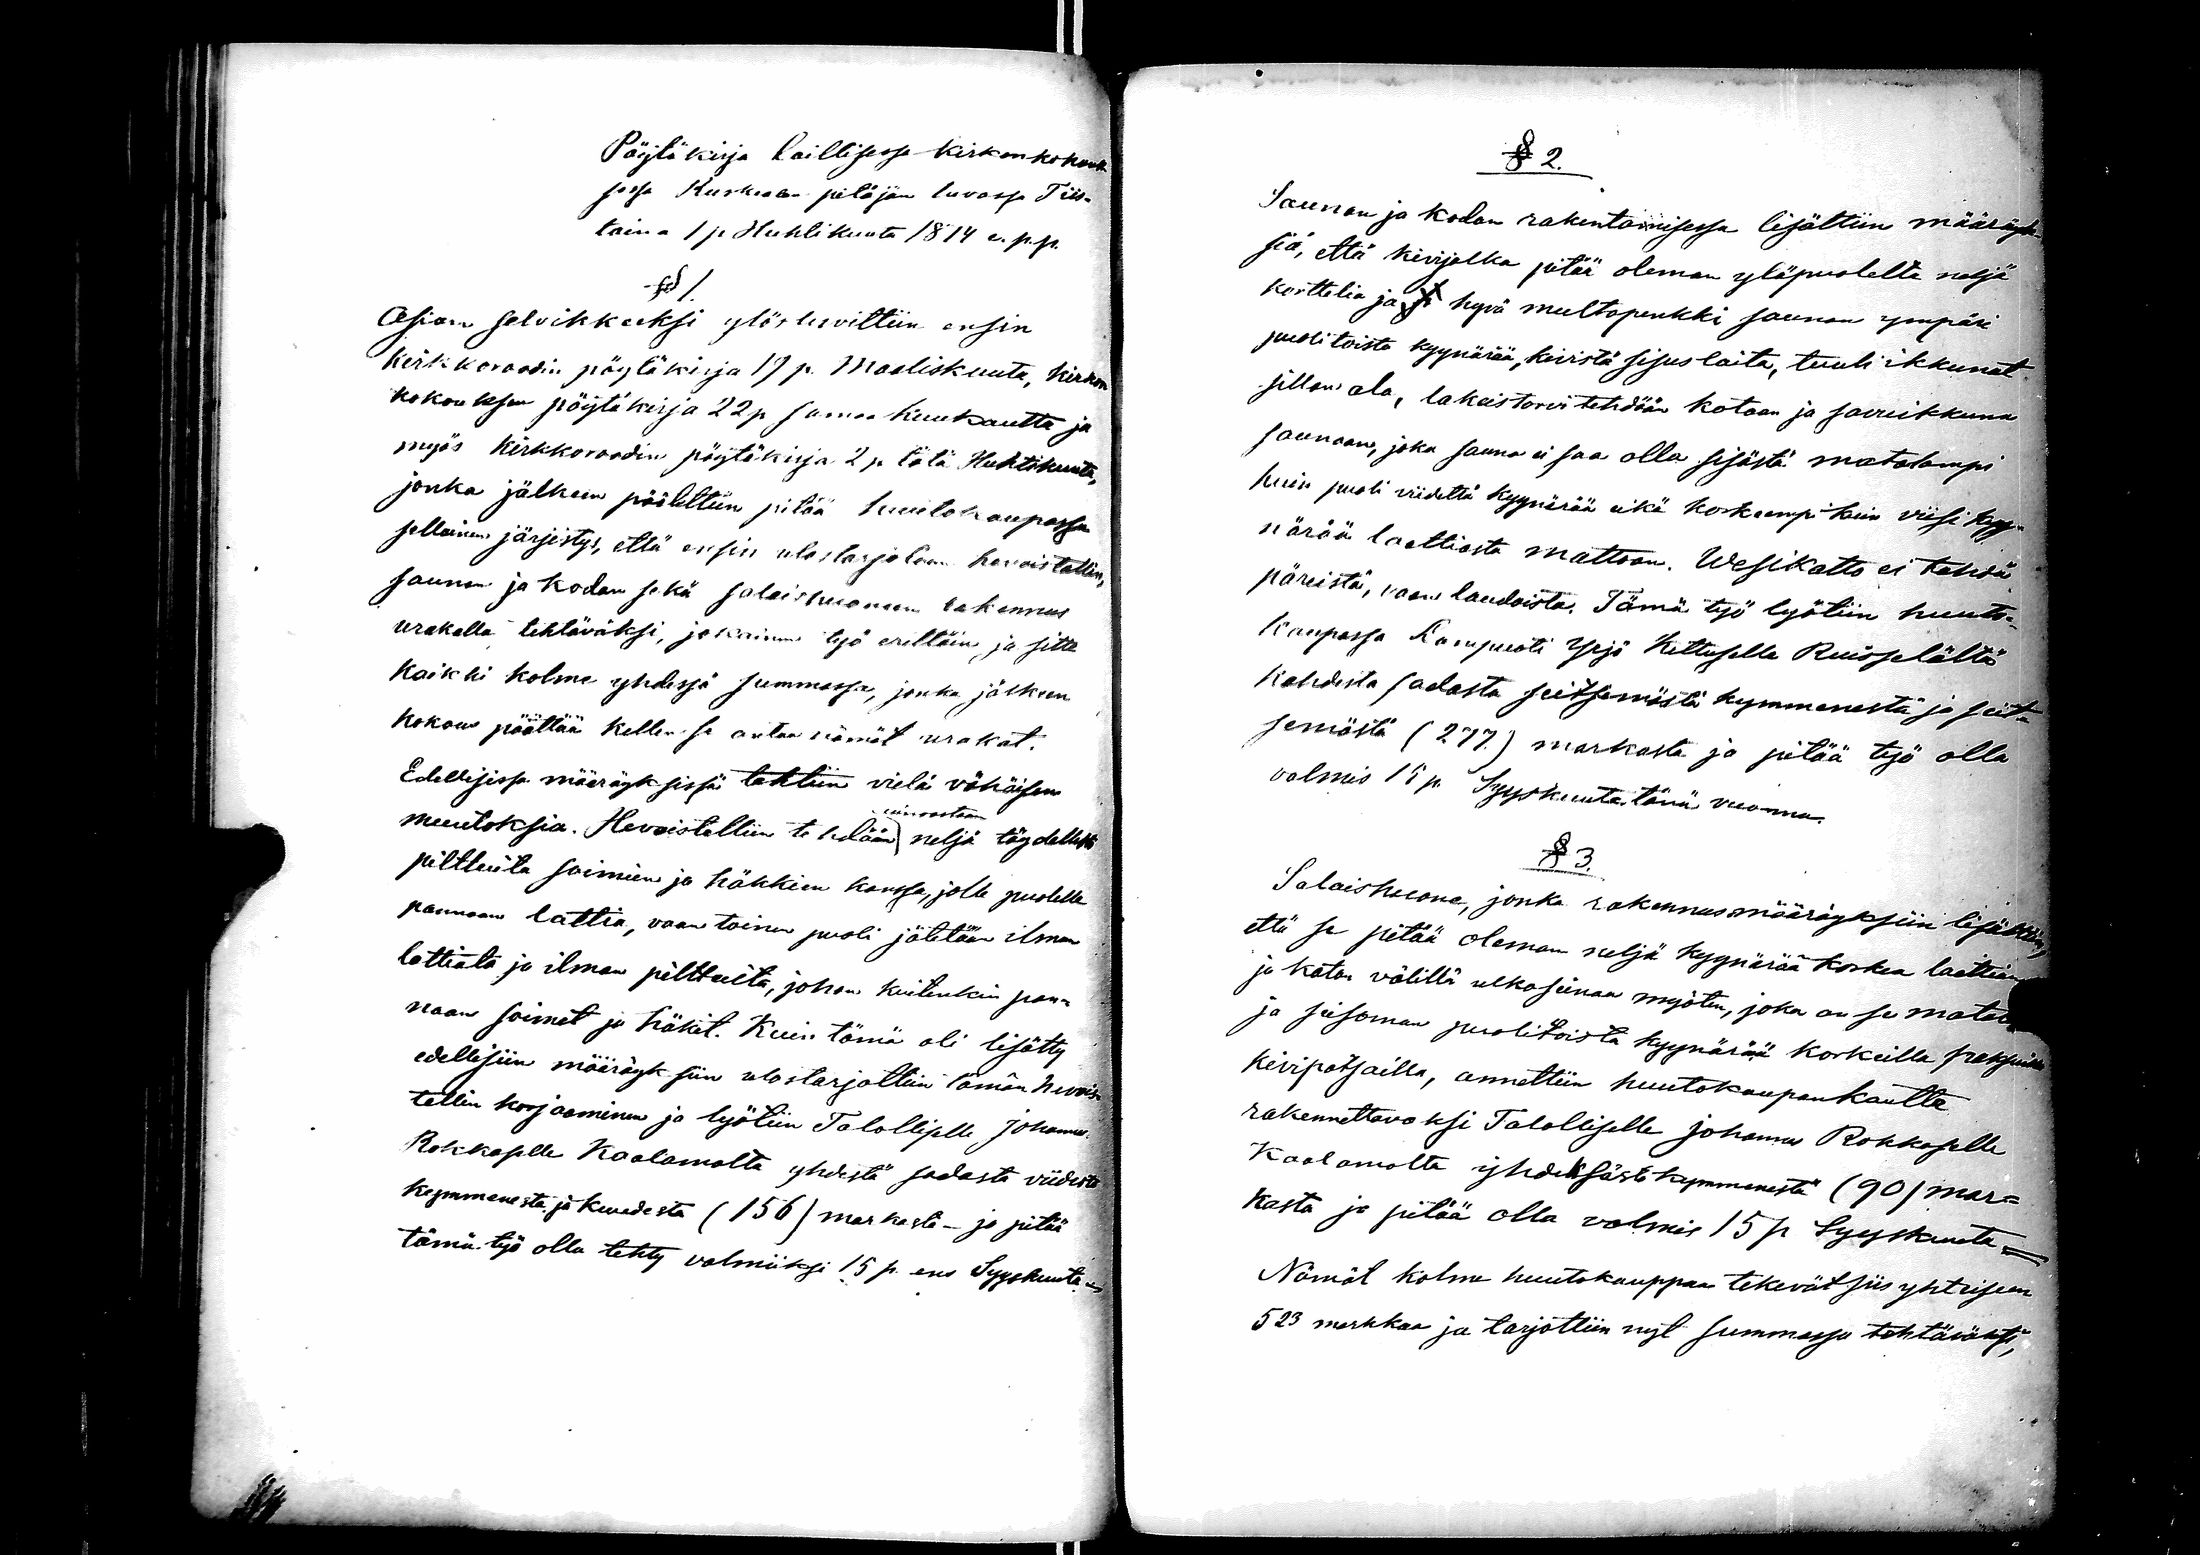 Pöytäkirja laillisessa kirkonkokouk
sessa Kurkuan pitäjän tuvassa Tiis-
taina 1 p Huhtikuuta 1874 e. p. p.
§ 1.
Asian selvikkeeksi ylösluvittiin ensin
kirkkoraadin pöytäkirja 17 p. Maaliskuuta, kirkon
kokouksen pöytäkirja 22 p samaa kuukautta ja
myös kirkkoraadin pöytäkirja 2 p tätä Huhtikuuta,
jonka jälkeen päätettiin pitää huutokaupassa
sellainen järjestys, että ensin ulostarjotaan hevoistallin,
saunan ja kodan sekä salaishuoneen rakennus
urakalla tehtäväksi, jokainen työ erittäin ja sitte
kaikki kolme yhdessä summassa, jonka jälkeen
kokous päättää kellen se antaa nämät urakat.
Edellisissä määräyksissä tehtiin vielä vähäisen
muutoksia. Hevoistalliin tehdään ainoastaan neljä täydellistä
pilttuuta soimien ja häkkien kanssa, jolle puolelle
pannaan lattia, vaan toinen puoli jätetään ilman
lattiata ja ilman pilttuita, johon kuitenkin pan-
naan soimet ja häkit. Kuin tämä oli lisätty
edellisiin määräyksiin ulostarjottiin tämän hevois-
tallin korjaaminen ja lyötiin Talolliselle Johannes
Rokkaselle Kaalamolta yhdestä sadasta viidestä
kymmenestä ja kuudesta (156) markasta – ja pitää
tämä työ olla tehty valmiiksi 15 p. ens Syyskuuta
§ 2.
Saunan ja kodan rakentamisessa lisättiin määräyk-
siä, että kivijalka pitää oleman yläpuolelta neljä
korttelia ja hyvä multapenkki saunan ympäri
puolitoista kyynärää, hirristä sisuslaita, tuuli ikkunat
sillan ala, lakeistorvi tehdään kotaan ja savuikkuna
saunaan, joka sauna ei saa olla sisästä matalampi
kuin puoli viidettä kyynärää eikä korkeempi kuin viisi kyy-
närää laattiasta mattoon. Wesikatto ei tehdä
päreistä, vaan laudoista. Tämä työ lyötiin huuto-
kaupassa Kampuoti Yrjö Kettuselle Ruisselältä
kahdesta sadasta seitsemästä kymmenestä ja seit-
semästä (277.) markasta ja pitää työ olla
valmis 15 p Syyskuuta tänä vuonna.
§ 3.
Salaishuone, jonka rakennusmääräyksiin lisättiin,
että se pitää oleman neljä kyynärää korkea laattian
ja katon välillä ulkoseinaa myöten, joka on se
ja seisoman puolitoista kyynärää korkeilla
kivipatsailla, annettiin huutokaupan kautta
rakennettavaksi Talolliselle Johannes Rokkaselle
Kaalamolta yhdeksästäkymmenestä (90) mar=
kasta ja pitää olla valmis 15 p Syyskuuta =
Nämät kolme huutokauppaa tekevät siis yhteiseen
523 markkaa ja tarjottiin nyt summassa tehtäväksi,